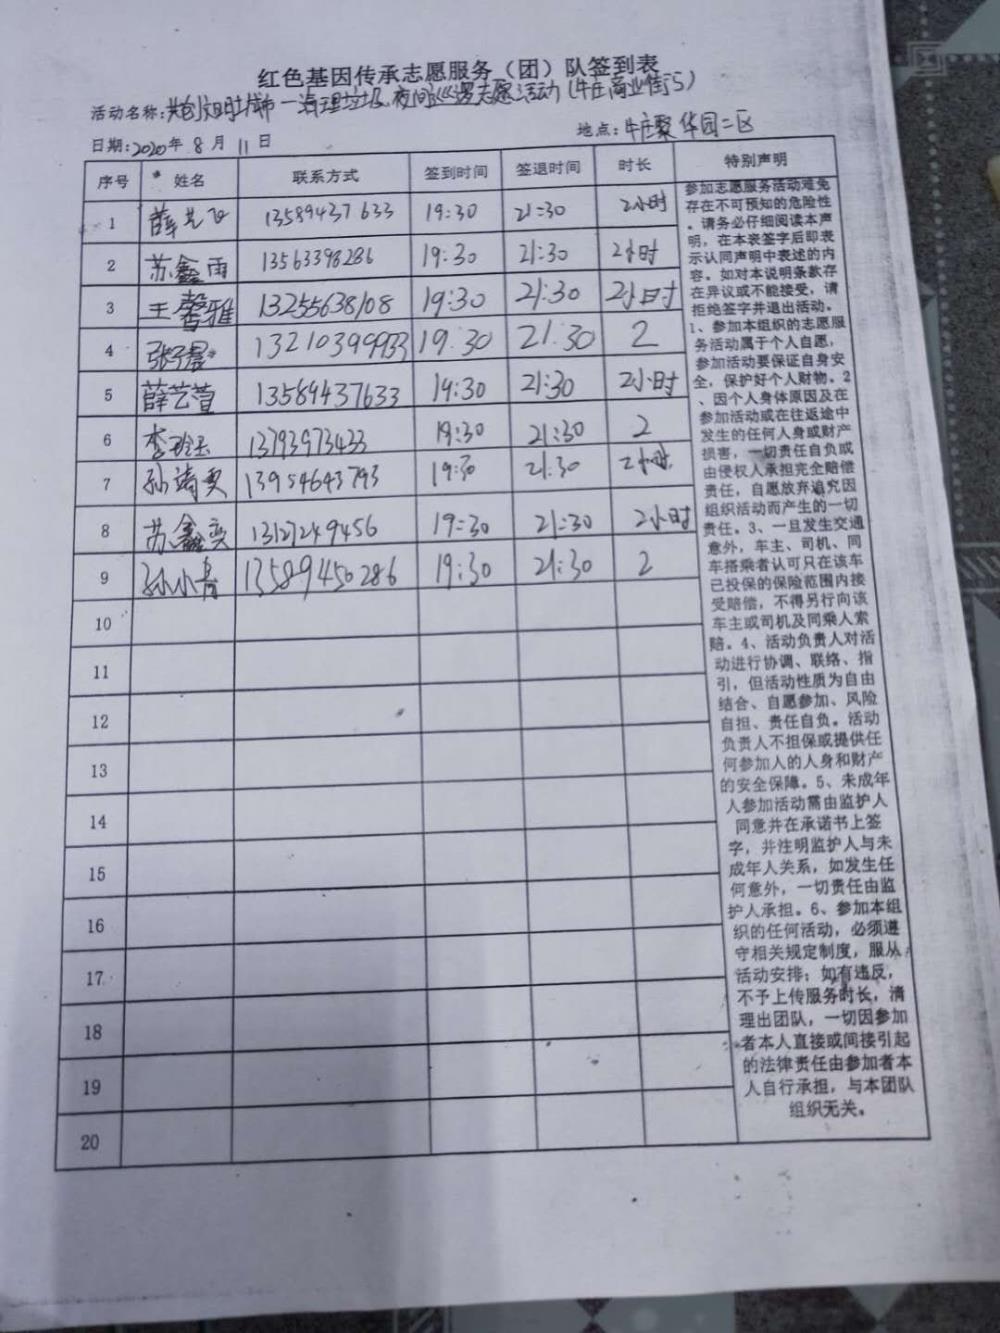 红色基因传承志愿服务（团）队签到表
活动名称:共创文明城市—清理垃圾、夜间巡逻志愿活动(牛庄商业街S)
日期:2020年 8 月 11 日 地点:牛庄聚华园二区
序号 姓名 联系方式 签到时间 签退时间 时长 特别声明
1 薛 13589437633 19:30 21:30 2小时
2 苏鑫雨 13563398286 19:30 21:30 2小时
3 王馨雅 13255638108 19:30 21:30 2小时
4 张子晨 13210399933 19:30 21:30 2
5 薛艺萱 13589437633 19:30 21:30 2小时
6 李玉 13793973433 19:30 21:30 2
7 孙靖雯 13954643793 19:30 21:30 2小时
8 苏鑫奕 13127249456 19:30 21:30 2小时
9 孙小青 13589450286 19:30 21:30 2
10
11
12
13
14
15
16
17
18
19
20
参加志愿服务活动难免
存在不可预知的危险性
。请务必仔细阅读本声
明，在本表签字后即表
示认同声明中表述的内
容。如对本说明条款存
在异议或不能接受，请
拒绝签字并退出活动。
1、参加本组织的志愿服
务活动属于个人自愿，
参加活动要保证自身安
全，保护好个人财物。2
、因个人身体原因及在
参加活动或在往返途中
发生的任何人身或财产
损害，一切责任自负或
由侵权人承担完全赔偿
责任，自愿放弃追究因
组织活动而产生的一切
责任。3、一旦发生交通
意外，车主、司机、同
车搭乘者认可只在该车
已投保的保险范围内接
受赔偿，不得另行向该
车主或司机及同乘人索
赔。4、活动负责人对活
动进行协调、联络、指
引，但活动性质为自由
结合、自愿参加、风险
自担、责任自负。活动
负责人不担保或提供任
何参加人的人身和财产
的安全保障。5、未成年
人参加活动需由监护人
同意并在承诺书上签
字，并注明监护人与未
成年人关系，如发生任
何意外，一切责任由监
护人承担。6、参加本组
织的任何活动，必须遵
守相关规定制度，服从
活动安排；如有违反，
不予上传服务时长，清
理出团队，一切因参加
者本人直接或间接引起
的法律责任由参加者本
人自行承担，与本团队
组织无关。